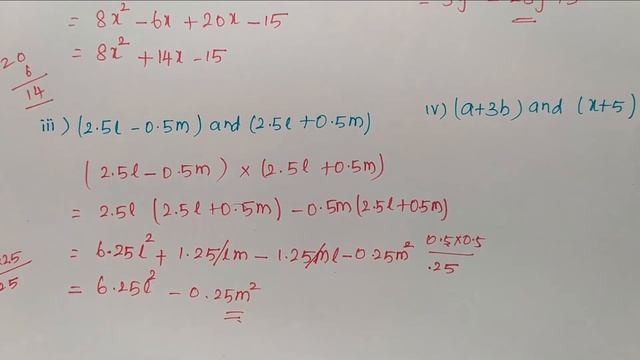 = 8x² - 6x + 20x - 15
= 8x² + 14x - 15
20
6
14
iii) (2.5l - 0.5m) and (2.5l + 0.5m)
iv) (a+3b) and (x+5)
(2.5l - 0.5m) × (2.5l + 0.5m)
= 2.5l (2.5l + 0.5m) - 0.5m (2.5l + 0.5m)
= 6.25l² + 1.25lm - 1.25ml - 0.25m²
0.5 × 0.5
.25
= 6.25l² - 0.25m²